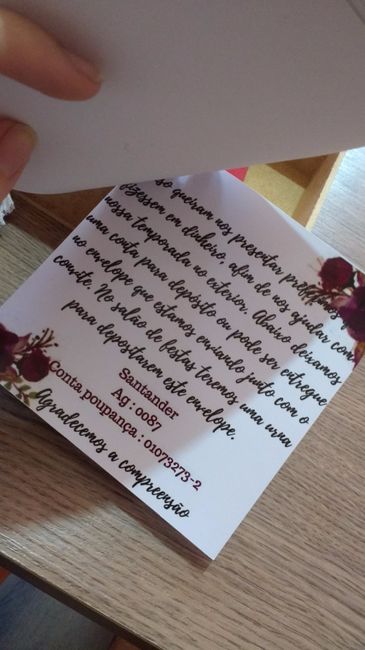 so queiram nos presentar
fizessem em dinheiro, afim de nos ajudar com
nossa temporada no exterior. Abaixo deixamos
uma conta para depósito ou pode ser entregue
no envelope que estamos enviando junto com o
convite. No salão de festas teremos uma urna
para depositarem este envelope.
Santander
Ag : 0087
Conta poupança : 01073273-2
Agradecemos a compreensão